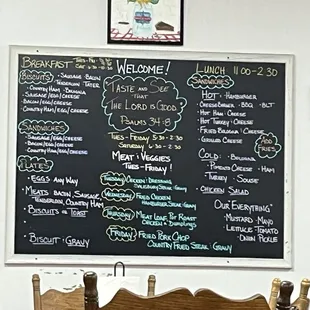 BREAKFAST
BISCUITS • SAUSAGE • BACON
• COUNTRY HAM • BOLOGNA
• SAUSAGE/EGG/CHEESE
• BACON/EGG/CHEESE
• COUNTRY HAM/EGG/CHEESE
SANDWICHES
• SAUSAGE/EGG/CHEESE
• BACON/EGG/CHEESE
• COUNTRY HAM/EGG/CHEESE
PLATES
• EGGS ANY WAY
• MEATS: BACON, SAUSAGE,
• TENDERLOIN, COUNTRY HAM
• BISCUITS OR TOAST
• BISCUIT • GRAVY
WELCOME!
TASTE AND SEE
THAT
THE LORD IS GOOD
PSALMS 34:8
TUES - FRIDAY 5:30 - 2:30
SATURDAY
MEAT & VEGGIES
TUES - FRIDAY!
TUESDAY CHICKEN & DRESSING
SALISBURY STEAK • GRAVY
WEDNESDAY FRIED CHICKEN
HAMBURGER STEAK • GRAVY
THURSDAY MEAT LOAF, POT ROAST
CHICKEN & DUMPLINGS
FRIDAY FRIED PORK CHOP
COUNTRY FRIED STEAK • GRAVY
LUNCH 11:00 - 2:30
SANDWICHES
HOT • HAMBURGER
• CHEESEBURGER • BBQ • BLT
• HOT HAM • CHEESE
• HOT TURKEY • CHEESE
• FRIED BOLOGNA • CHEESE
• GRILLED CHEESE
ADD
FRIES
COLD: • BOLOGNA
• PIMENTO CHEESE
• TURKEY • SOUSE
• CHICKEN SALAD
"OUR EVERYTHING"
MUSTARD • MAYO
LETTUCE • TOMATO
ONION PICKLE